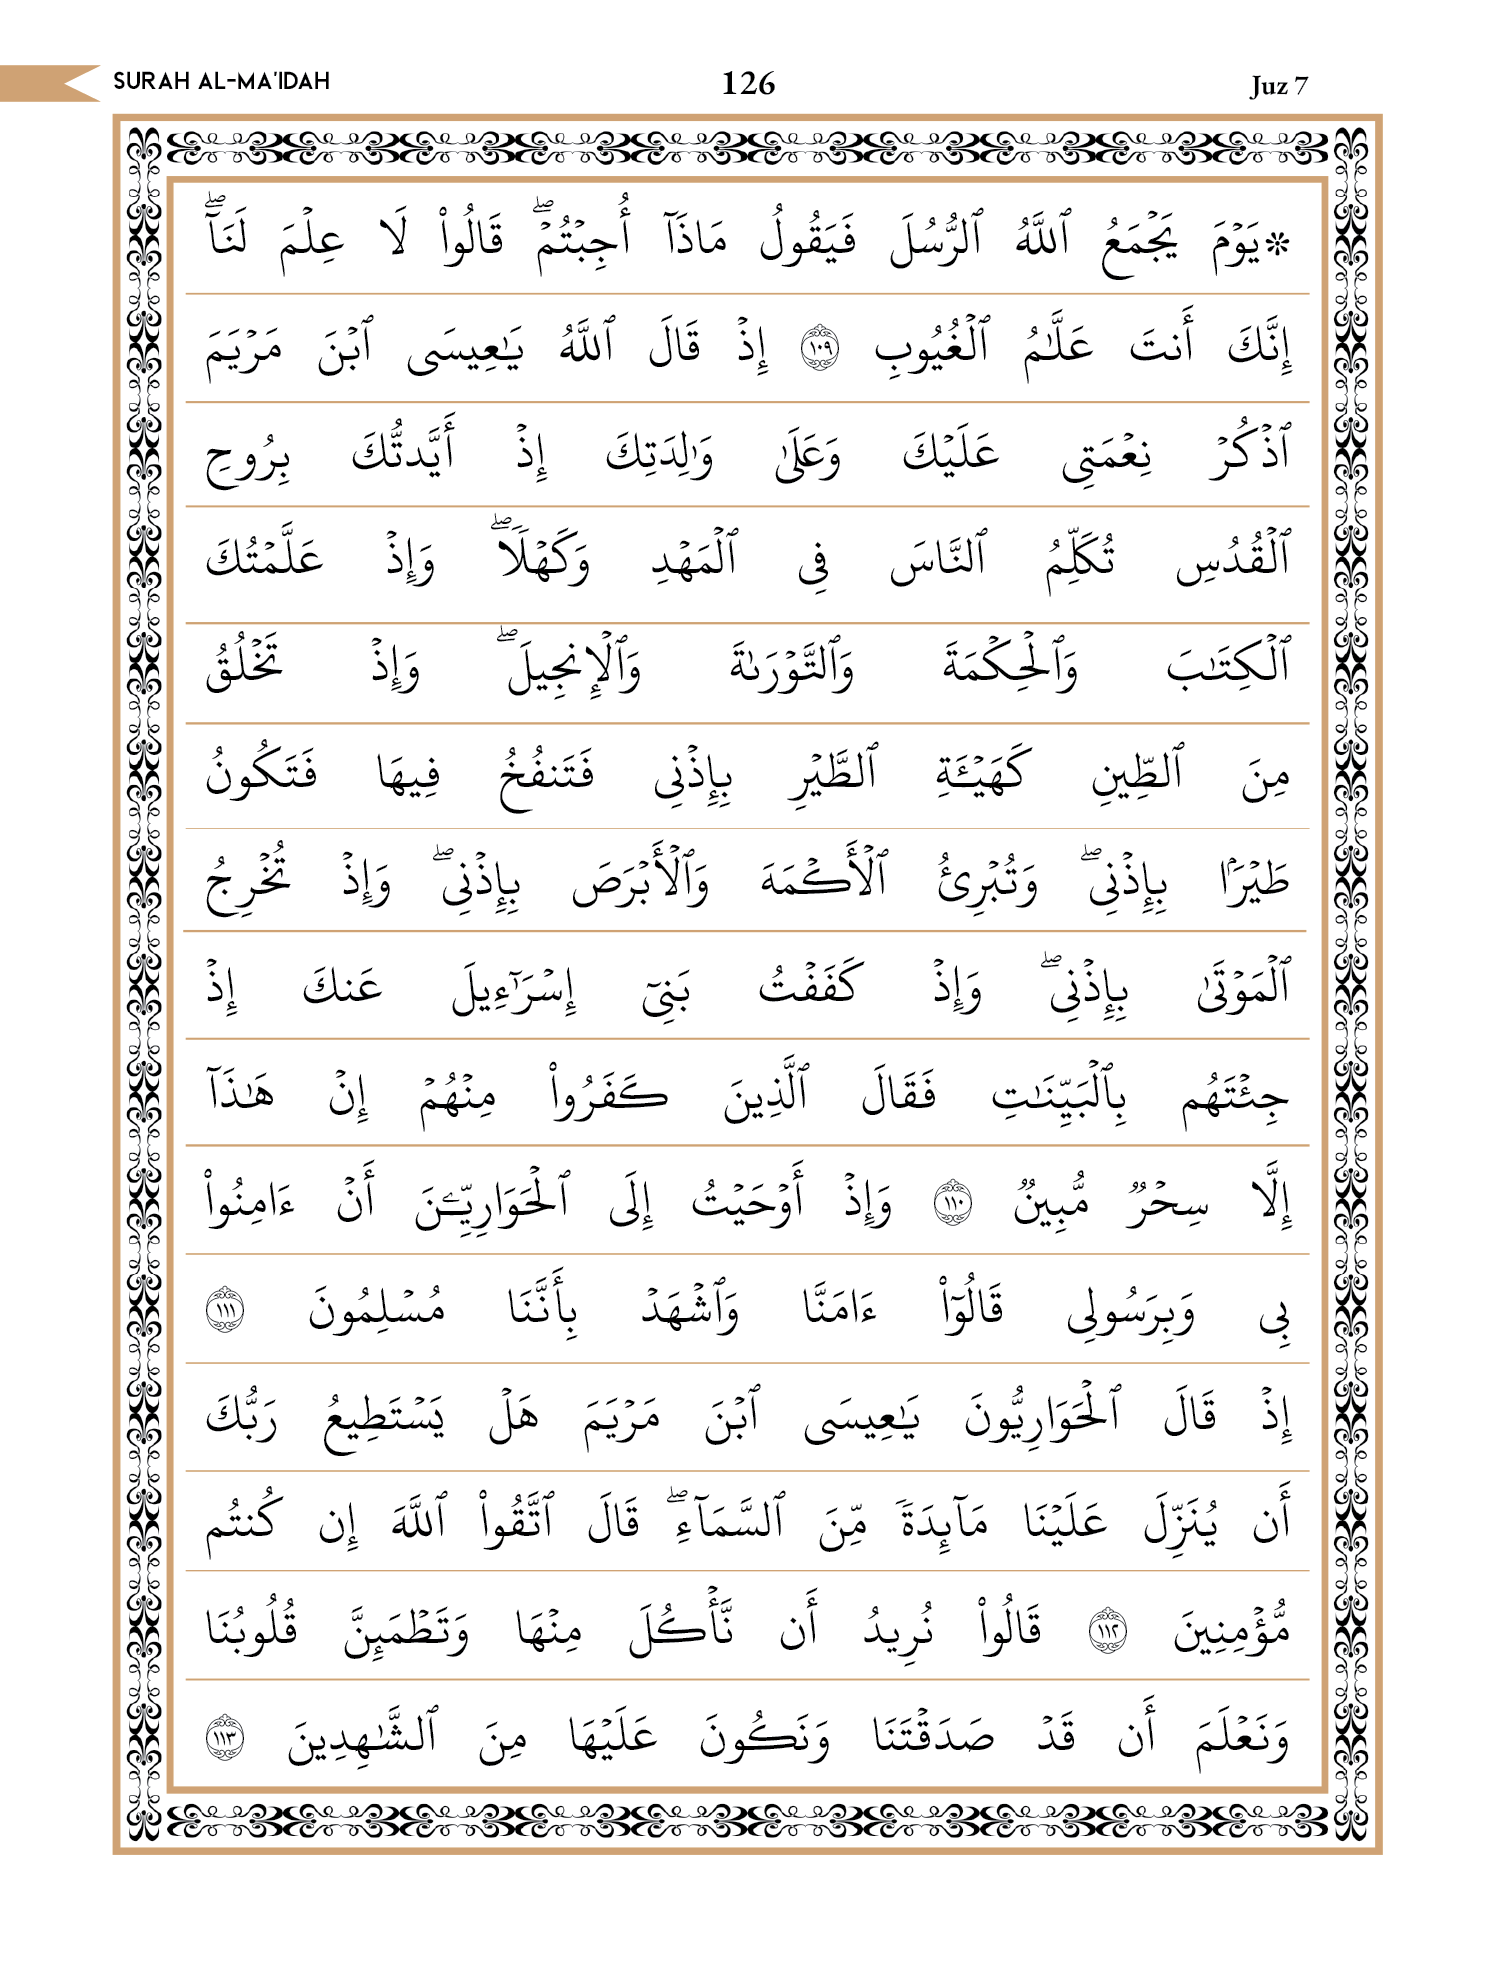 SURAH AL-MA'IDAH 126 Juz 7
۞يَوْمَ يَجْمَعُ ٱللَّهُ ٱلرُّسُلَ فَيَقُولُ مَاذَآ أُجِبْتُمْ ۖ قَالُوا۟ لَا عِلْمَ لَنَآ ۖ
إِنَّكَ أَنتَ عَلَّـٰمُ ٱلْغُيُوبِ ١٠٩ إِذْ قَالَ ٱللَّهُ يَـٰعِيسَى ٱبْنَ مَرْيَمَ
ٱذْكُرْ نِعْمَتِى عَلَيْكَ وَعَلَىٰ وَٰلِدَتِكَ إِذْ أَيَّدتُّكَ بِرُوحِ
ٱلْقُدُسِ تُكَلِّمُ ٱلنَّاسَ فِى ٱلْمَهْدِ وَكَهْلًا ۖ وَإِذْ عَلَّمْتُكَ
ٱلْكِتَـٰبَ وَٱلْحِكْمَةَ وَٱلتَّوْرَىٰةَ وَٱلْإِنجِيلَ ۖ وَإِذْ تَخْلُقُ
مِنَ ٱلطِّينِ كَهَيْـَٔةِ ٱلطَّيْرِ بِإِذْنِى فَتَنفُخُ فِيهَا فَتَكُونُ
طَيْرًۢا بِإِذْنِى ۖ وَتُبْرِئُ ٱلْأَكْمَهَ وَٱلْأَبْرَصَ بِإِذْنِى ۖ وَإِذْ تُخْرِجُ
ٱلْمَوْتَىٰ بِإِذْنِى ۖ وَإِذْ كَفَفْتُ بَنِىٓ إِسْرَٰٓءِيلَ عَنكَ إِذْ
جِئْتَهُم بِٱلْبَيِّنَـٰتِ فَقَالَ ٱلَّذِينَ كَفَرُوا۟ مِنْهُمْ إِنْ هَـٰذَآ
إِلَّا سِحْرٌ مُّبِينٌ ١١٠ وَإِذْ أَوْحَيْتُ إِلَى ٱلْحَوَارِيِّـۧنَ أَنْ ءَامِنُوا۟
بِى وَبِرَسُولِى قَالُوٓا۟ ءَامَنَّا وَٱشْهَدْ بِأَنَّنَا مُسْلِمُونَ ١١١
إِذْ قَالَ ٱلْحَوَارِيُّونَ يَـٰعِيسَى ٱبْنَ مَرْيَمَ هَلْ يَسْتَطِيعُ رَبُّكَ
أَن يُنَزِّلَ عَلَيْنَا مَآئِدَةً مِّنَ ٱلسَّمَآءِ ۖ قَالَ ٱتَّقُوا۟ ٱللَّهَ إِن كُنتُم
مُّؤْمِنِينَ ١١٢ قَالُوا۟ نُرِيدُ أَن نَّأْكُلَ مِنْهَا وَتَطْمَئِنَّ قُلُوبُنَا
وَنَعْلَمَ أَن قَدْ صَدَقْتَنَا وَنَكُونَ عَلَيْهَا مِنَ ٱلشَّـٰهِدِينَ ١١٣